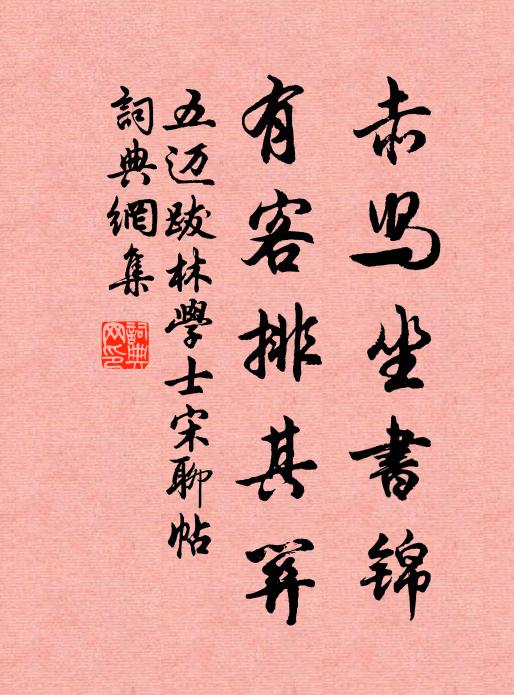 赤舄坐書锦
有客排其
五迈跋林學士宋聊帖
詞典網集
詞典
网印